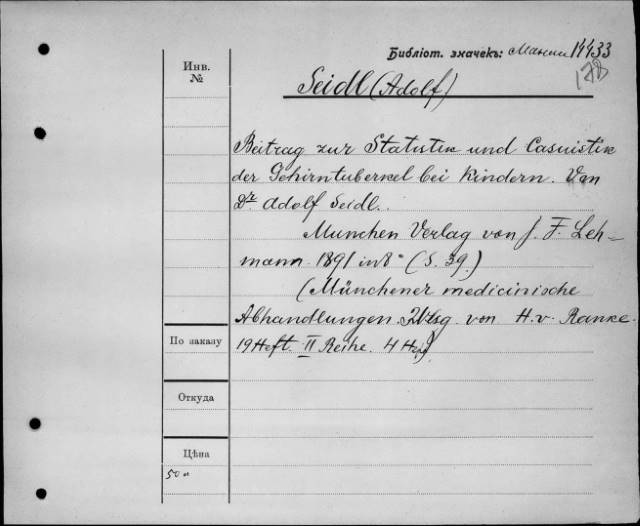 Библіот. значекъ: 14433
Инв.
№
178
Seidl (Adolf)
Beitrag zur Statistik und Casuistik
der Gehirntuberkel bei Kindern. Von
Dr. Adolf Seidl.
Munchen Verlag von J. F. Leh-
mann. 1891 in 8° (S. 39.)
(Münchener medicinische
Abhandlungen. von H. v. Ranke.
По заказу
19 Heft. II Reihe. 4 Heft)
Откуда
Цѣна
50 "